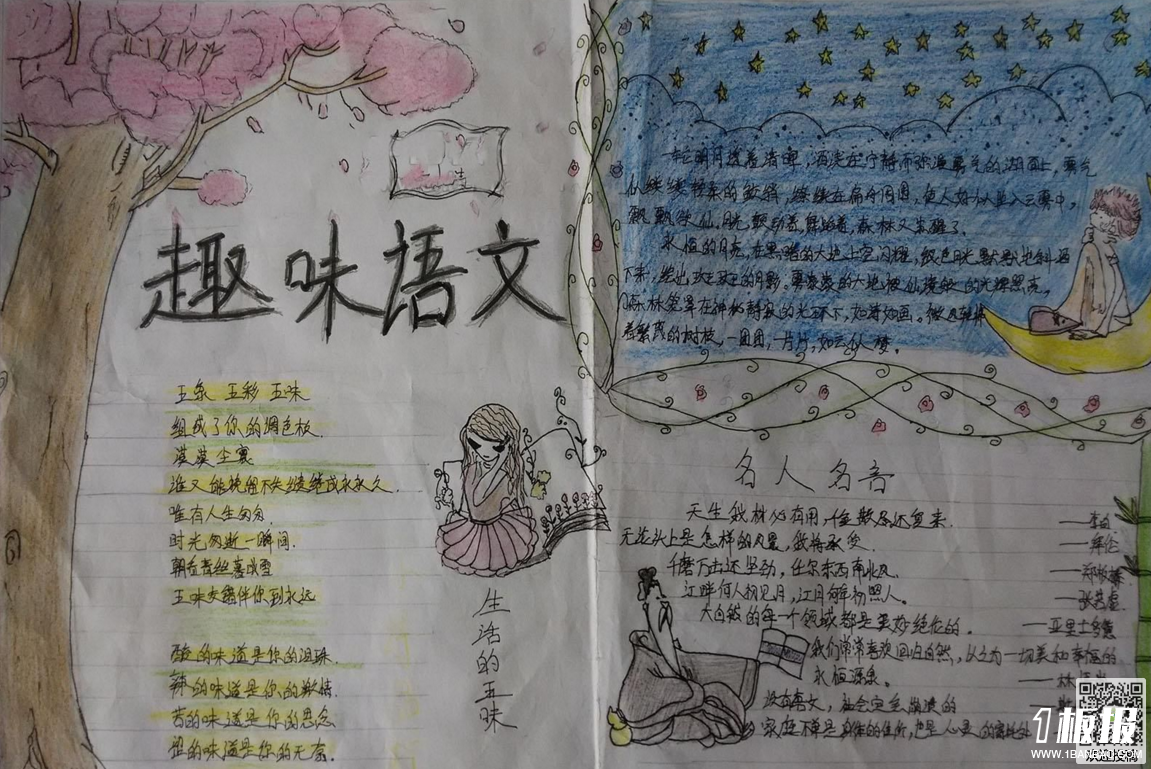 趣味语文
五象 五彩 五味
组成了你的调色板
漠漠尘寰
谁又能挽留不失续继成永永久.
唯有人生匆匆
时光匆逝一瞬间.
朝看青丝暮成雪
五味交错伴你到永远
酸的味道是你的泪珠.
辣的味道是你的激情.
苦的味道是你的思念
涩的味道是你的无奈.
生活的五味
一轮明月透着清晖,洒淡在宁静而弥漫雾气的湖面上,雾气
似缕缕轻柔的
飘飘欲仙,月光飘动着,舞蹈着,森林又朱醒了.
永恒的月亮,在黑暗的大地上空闪耀,银色月光默默地斜洒
下来,绘出斑斑的月影。雾蒙蒙的大地被仙境般的光辉照亮。
森林笼罩在神秘静寂的光环下,如诗如画。微风轻拂
着繁茂的树枝,一团团,一片片,如云似梦。
名人名言
天生我材必有用,千金散尽还复来. ——李白
无论头上是怎样的风景,我将承受. ——拜伦
千磨万击还坚劲,任尔东西南北风. ——郑板桥
江畔何人初见月,江月何年初照人. ——张若虚
大自然的每一个领域都是美妙绝伦的. ——亚里士多德
我们常常喜欢回归自然,以之为一切美和幸福的
永恒源泉. ——林
没有语文,社会定会崩溃的
家庭不单是身体的住所,也是心灵的寄托处
1板报
WWW.1BANBAO.COM
欢迎投稿